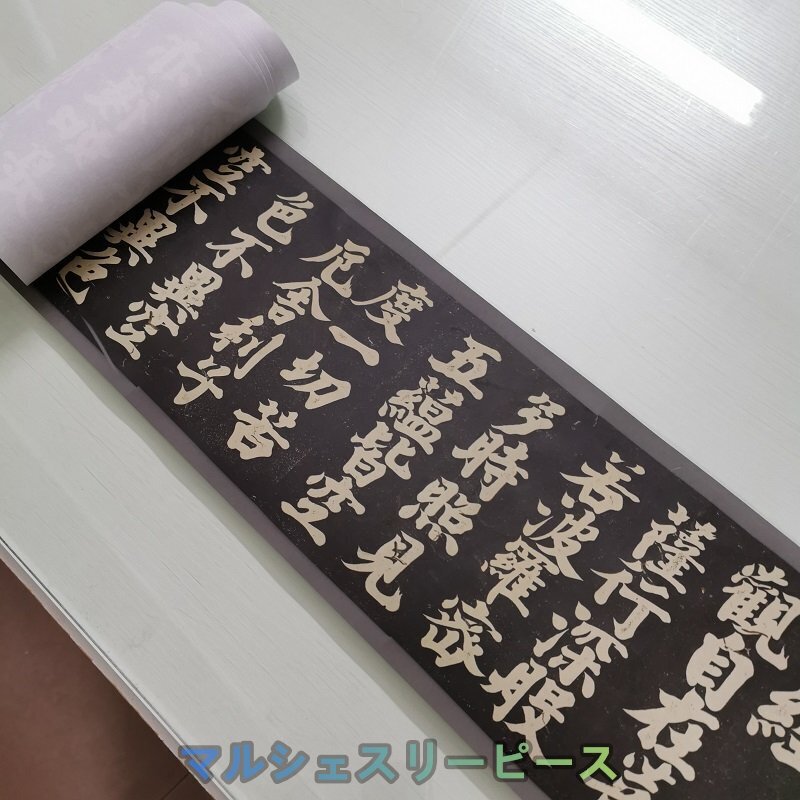 經
觀自在菩
薩行深般
若波羅蜜
多時照見
五蘊皆空
度一切苦
厄舍利子
色不異空
空不異色
マルシェスリーピース